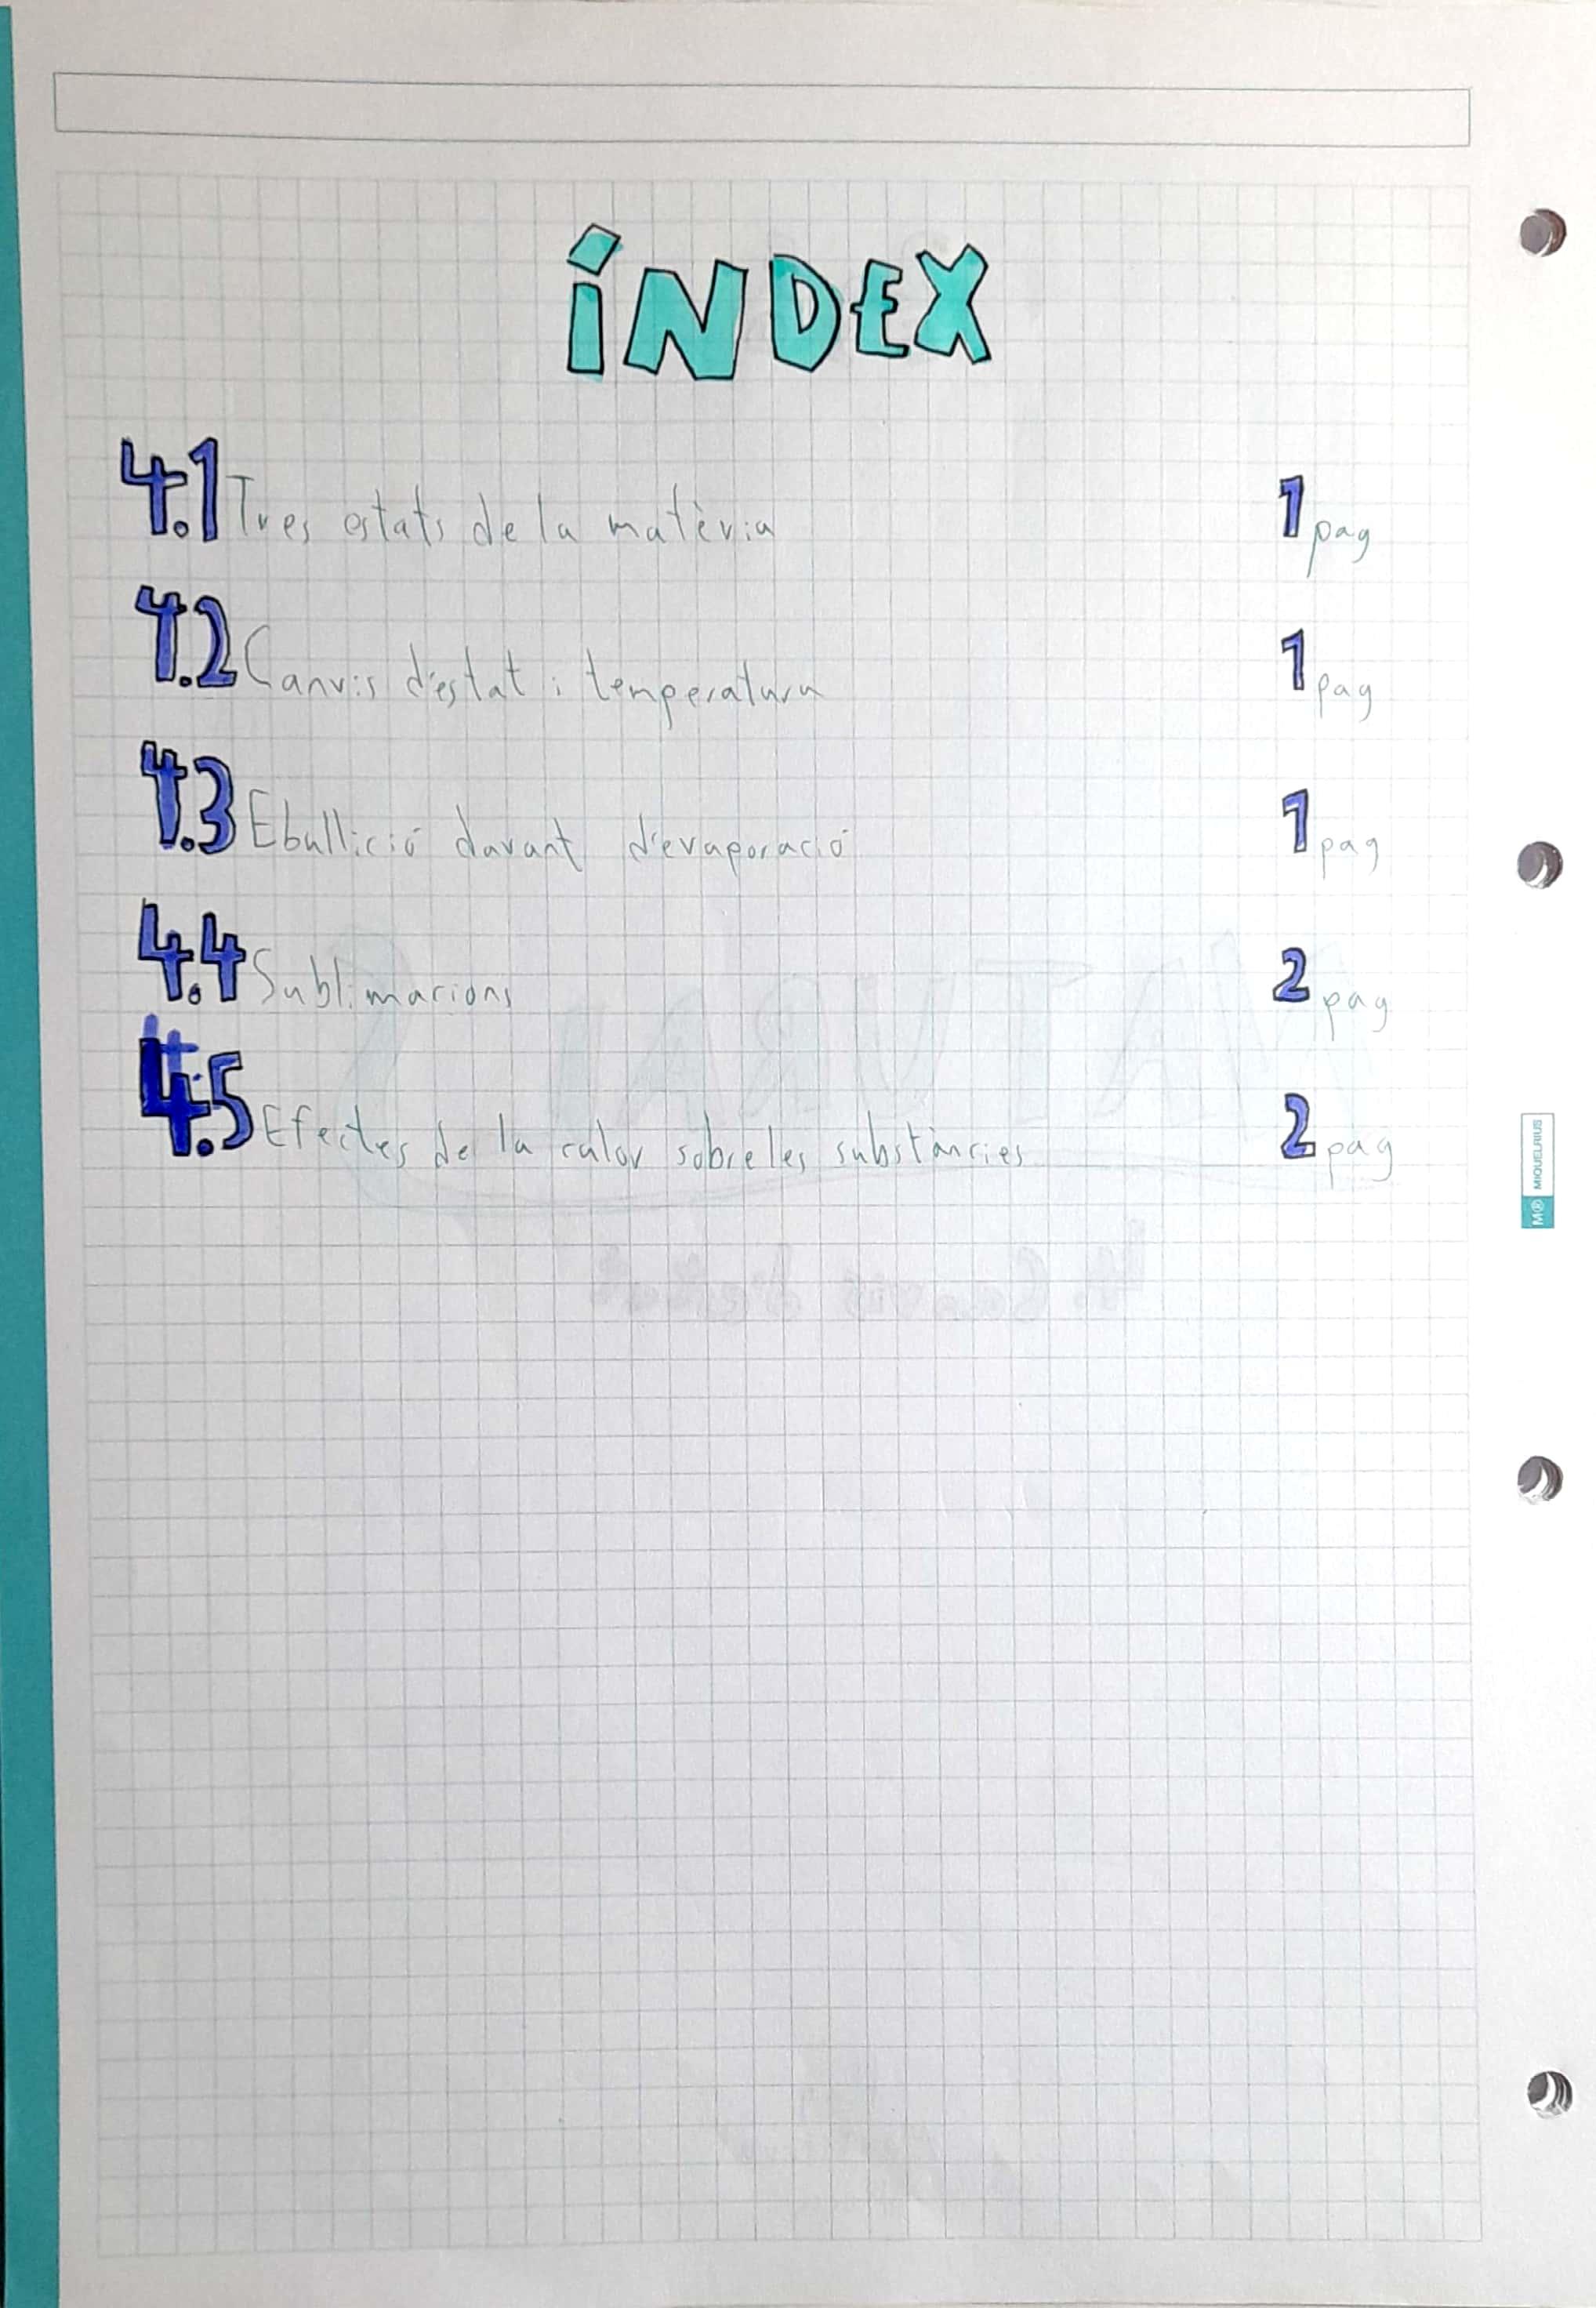 ÍNDEX
4.1 Tres estats de la matèria 1 pag
4.2 Canvis d'estat i temperatura 1 pag
4.3 Ebullició davant d'evaporació 1 pag
4.4 Sublimacions 2 pag
4.5 Efectes de la calor sobre les substàncies 2 pag
MIQUELRIUS
NATURALS
4. Canvis d'estat